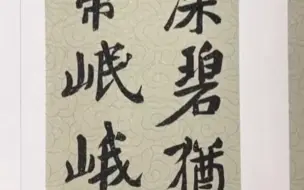 深碧猶
常岷峨